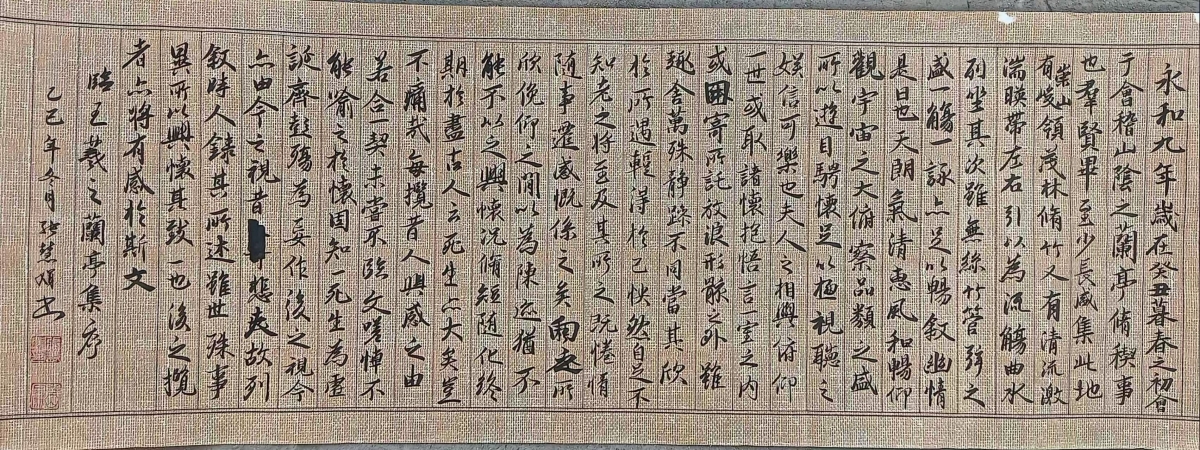 永和九年歲在癸丑暮春之初會
于會稽山陰之蘭亭脩稧事
也羣賢畢至少長咸集此地
有崇山峻領茂林脩竹又有清流激
湍暎帶左右引以為流觴曲水
列坐其次雖無絲竹管弦之
盛一觴一詠亦足以暢敘幽情
是日也天朗氣清惠風和暢仰
觀宇宙之大俯察品類之盛
所以遊目騁懷足以極視聽之
娛信可樂也夫人之相與俯仰
一世或取諸懷抱悟言一室之內
或因寄所託放浪形骸之外雖
趣舍萬殊靜躁不同當其欣
於所遇輕得於己怏然自足不
知老之將至及其所之既惓情
隨事遷感慨係之矣向之所
欣俛仰之閒以為陳迹猶不
能不以之興懷況脩短隨化終
期於盡古人云死生亦大矣豈
不痛哉每攬昔人興感之由
若合一契未嘗不臨文嗟悼不
能喻之於懷固知一死生為虛
誕齊彭殤為妄作後之視今
亦由今之視昔悲夫故列
敘時人錄其所述雖世殊事
異所以興懷其致一也後之攬
者亦將有感於斯文
臨王羲之蘭亭集序
乙巳年冬月